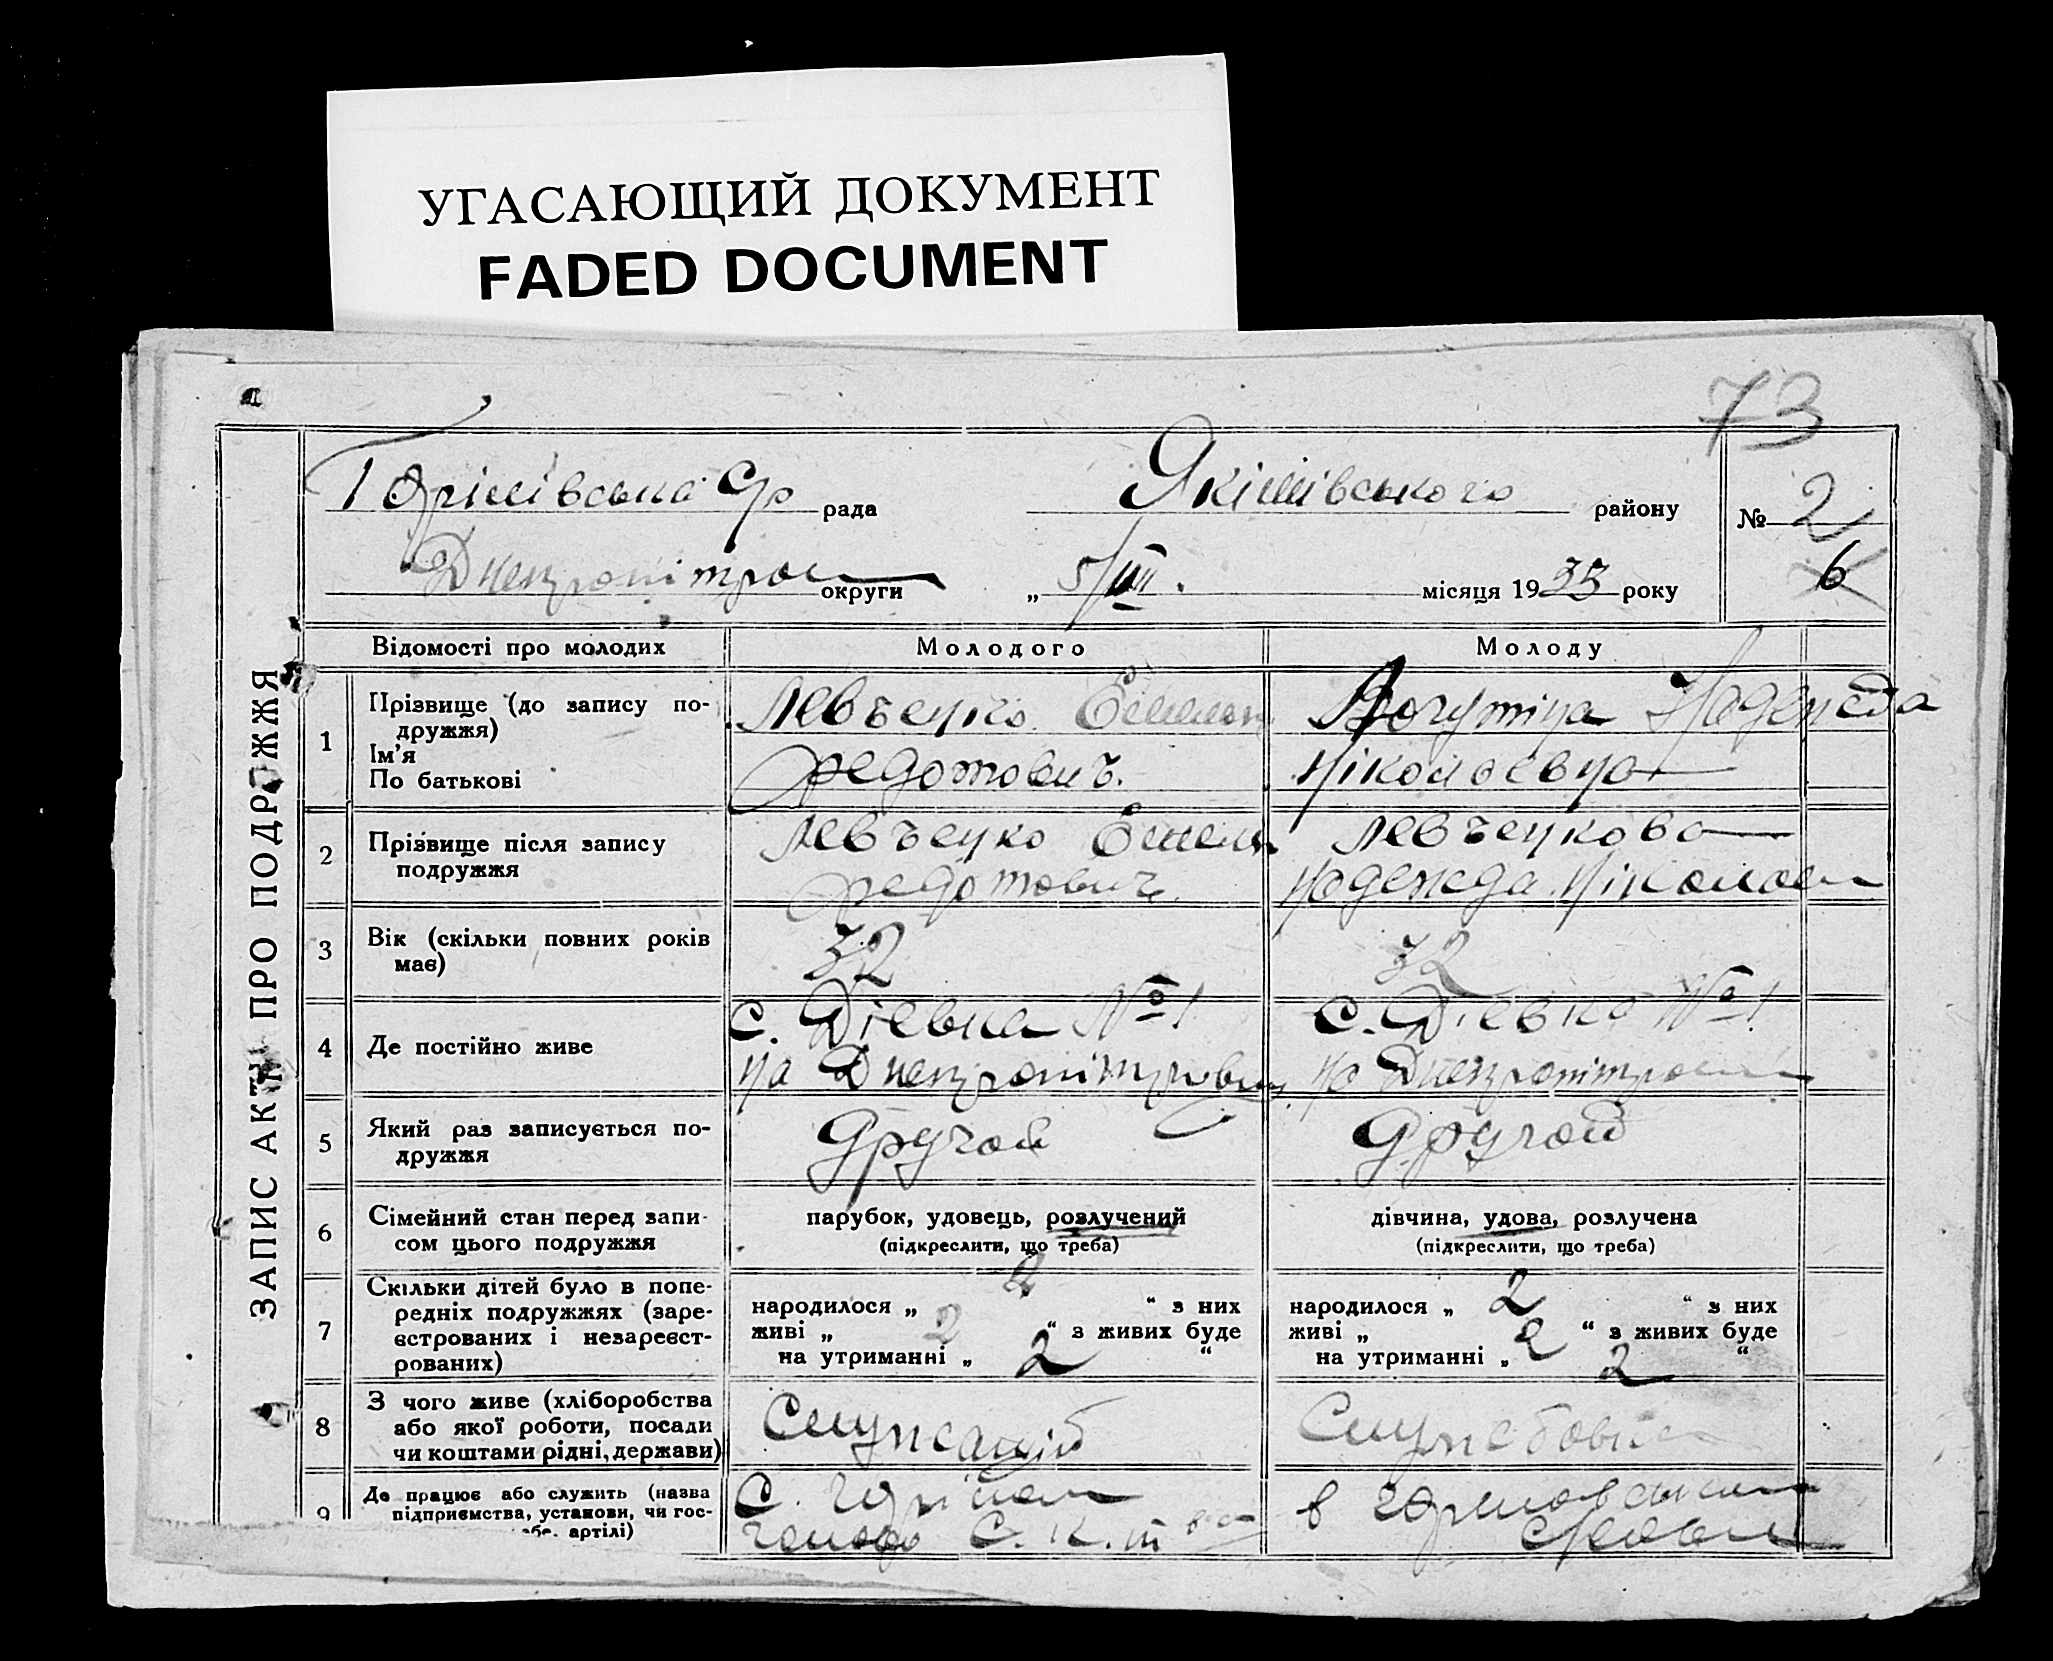 УГАСАЮЩИЙ ДОКУМЕНТ
FADED DOCUMENT
73
ЗАПИС АКТУ ПРО ПОДРУЖЖЯ
рада
Якімівського району
№ 2
6
Днепропітров округи „ 5/VIII. місяця 1933 року
Відомості про молодих
Молодого
Молоду
1
Прізвище (до запису по-
дружжя)
Ім'я
По батькові
Левченко
Федотович.
Надежда
Ніколаевна
2
Прізвище після запису
подружжя
Левченко
Федотович
Левченкова
Надежда Ніколаев
3
Вік (скільки повних років
має)
32
32
4
Де постійно живе
с. Діевка №1
на
с. Діевка №1
на
5
Який раз записується по-
дружжя
Другой
Другой
6
Сімейний стан перед запи-
сом цього подружжя
парубок, удовець, розлучений
(підкреслити, що треба)
дівчина, удова, розлучена
(підкреслити, що треба)
7
Скільки дітей було в попе-
редніх подружжях (заре-
єстрованих і незареєст-
рованих)
народилося „ 2 “ з них
живі „ 2 “ з живих буде
на утриманні „ 2 “
народилося „ 2 “ з них
живі „ 2 “ з живих буде
на утриманні „ 2 “
8
З чого живе (хліборобства
або якої роботи, посади
чи коштами рідні, держави)
Служащій
9
Де працює або служить (назва
підприємства, установи, чи гос-
або. артілі)
С.
голова
в